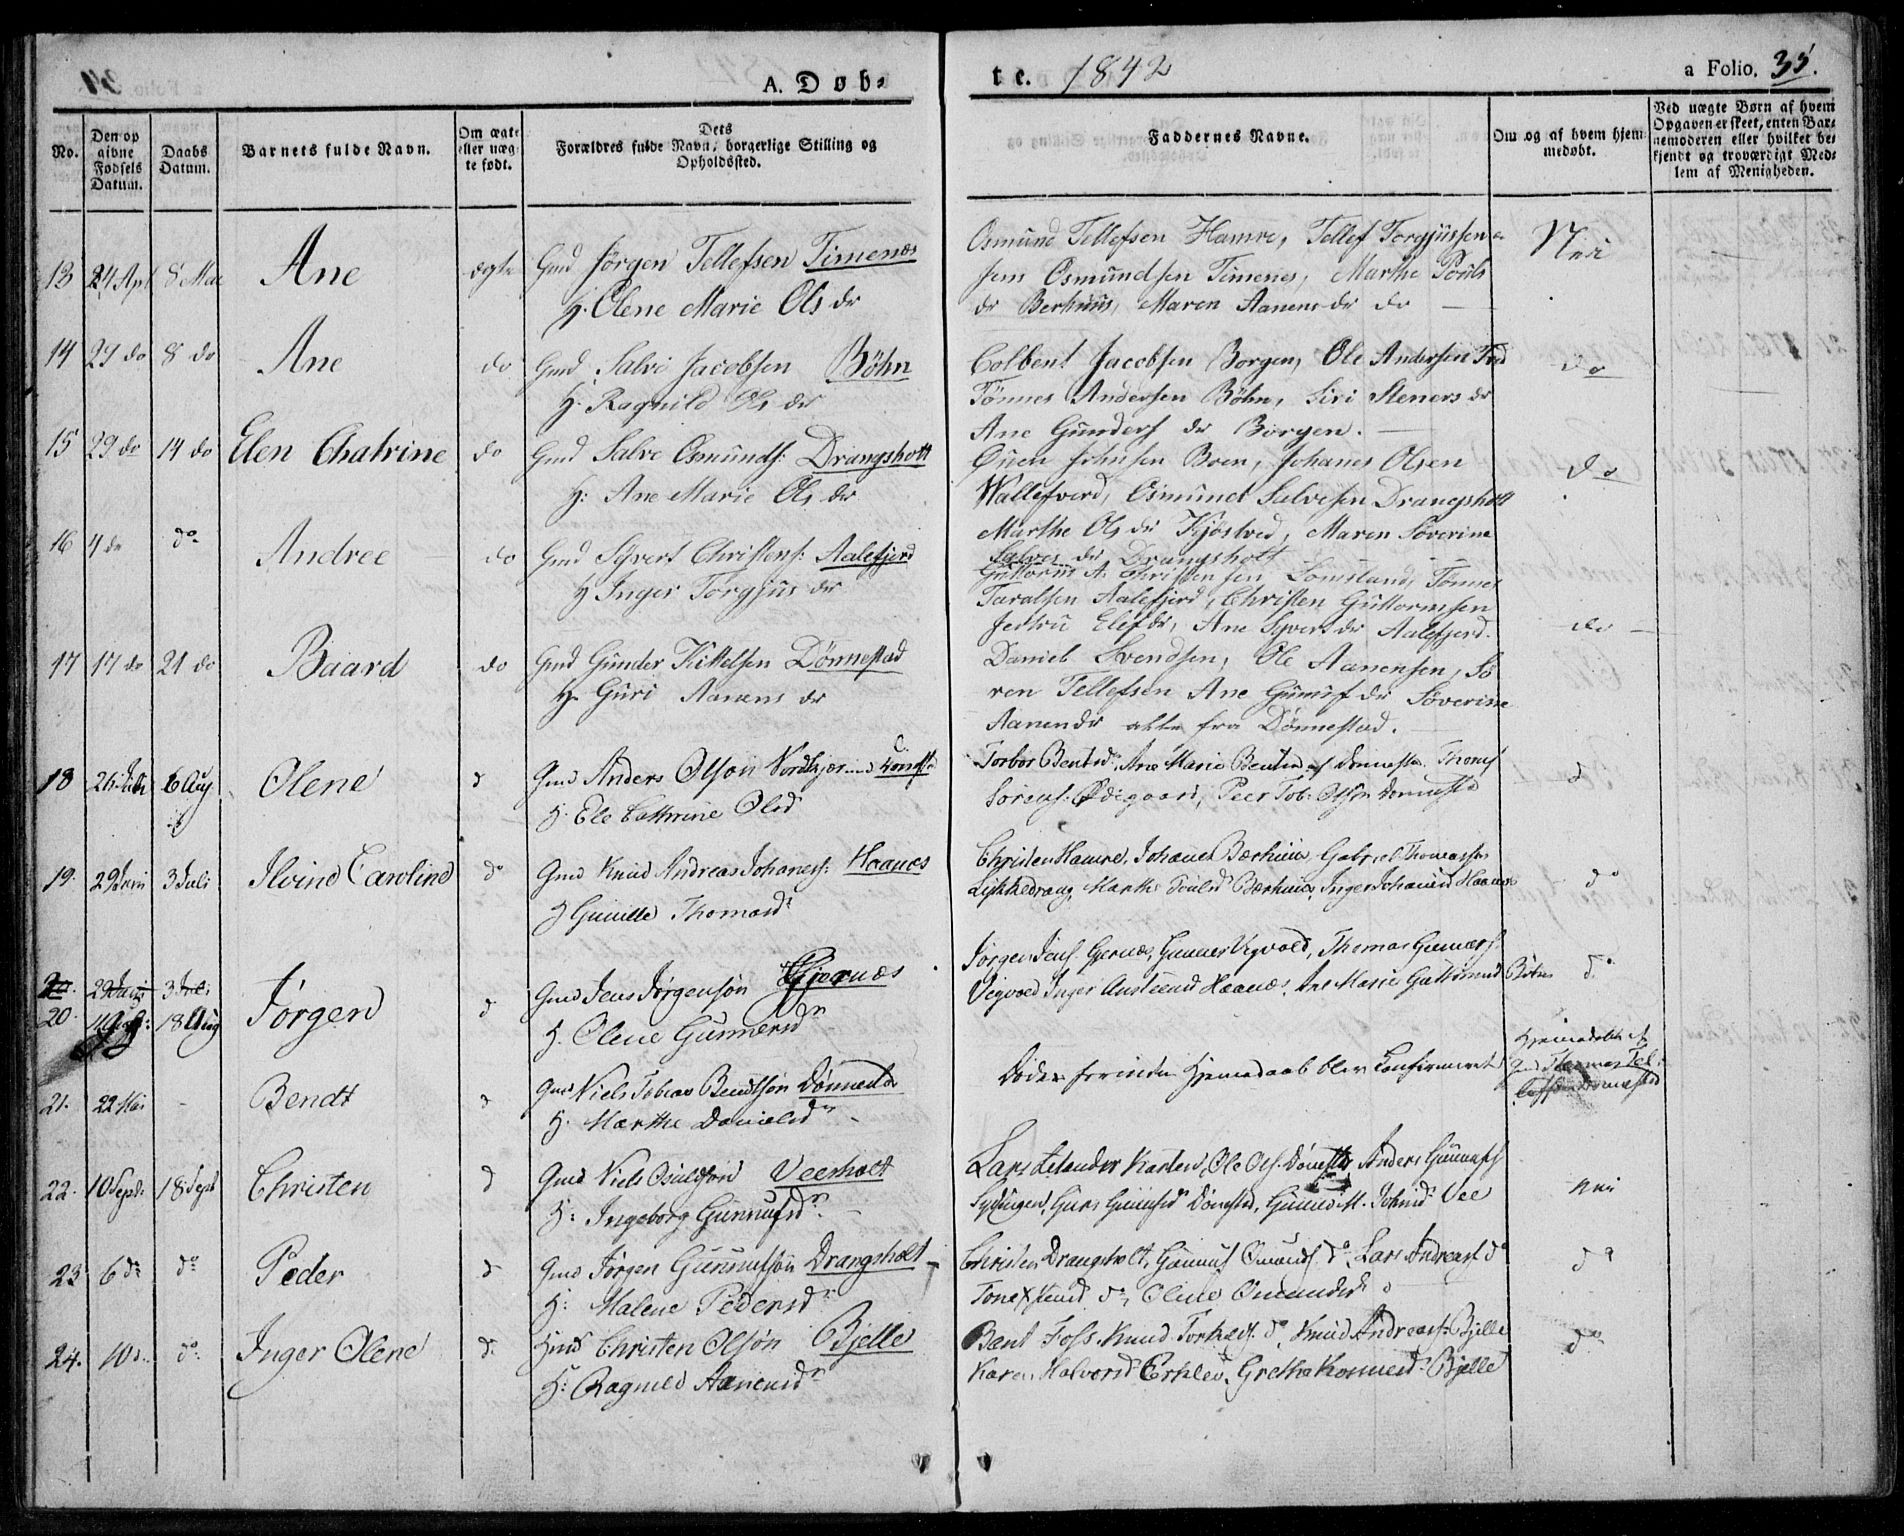 A. Døb-
te. 1842
a Folio. 35.
No.
Den op
givne
Fødsels
Datum.
Daabs
Datum.
Barnets fulde Navn.
Om ægte
eller uæg
te født.
Dets
Forældres fulde Navn, borgerlige Stilling og
Opholdssted.
Faddernes Navne.
Om og af hvem hjem
medøbt.
Ved uægte Børn af hvem
Opgaven er skeet, enten Bar-
nemoderen eller hvilket be-
kjendt og troværdigt Med-
lem af Menigheden.
13 24 Apl 8 Mai Ane ægte Gmd Jörgen Tellefsen Timenæs
H. Olene Marie Ols dr
Osmund Tellefsen Hamre, Tellef Torgjussen
Osmundsen Timenes, Marthe Pouls
dr Berhuus, Maren Aanens dr do
Nei
14 29 do 8 do Ane do Gmd Salve Jacobsen Böhn
H. Ragnild Ols dr
Colbent Jacobsen Borgen, Ole Andersen
Tönnes Andersen Böhn, Siri Steners dr
Ane Gunders dr Borgen.
do
15 29 do 14 do Elen Chatrine do Gmd Salve Osmunds: Drangsholt
H: Ane Marie Ols dr
Ouen Johnsen Boen, Johanes Olsen
Wallesverd, Osmund Salvesen Drangsholt
Marthe Ols dr Kjöstved, Maren Severine
Salves dr Drangsholt
do
16 4 do do Andree do Gmd Syvert Christens: Aalefjerd
H Inger Torgjus dr
Guttorm A. Christensen Somsland, Tönnes
Taralsen Aalefjerd, Christen Guttormsen
Elefs dr, Ane Syverts dr Aalefjerd.
do
17 17 do 21 do Baard do Gmd Gunder Kittelsen Dönnestad
H. Guri Aanens dr
Daniel Svendsen, Ole Aanensen, Sö
ren Tellefsen Ane Gunufs dr Söverine
Aanens dr alle fra Dönnestad.
18 26 Juli 6 Aug Olene d Gmd Anders Olson
H. Ele Cathrine Olsd
Torbor Bentsd, Ane Marie Bentsd af Donnestad Thomas
Sörens: Ödegaard, Peer Tob: Olsen Donnestad
d
19. 29 Juni 3 Juli Carolina do Gmd Knud Andreas Johanes: Haanæs
H Gunille Thomasd
Christen Hamre, Johanes Bærhuus, Gabriel Thomassen
Lighthedrang, Marthe Poulsd Bærhuus, Inger Johanesd Haanæs
do
20. 29 Juni 3 Juli
20. 18 Aug Jörgen d Gmd Jens Jörgensön Gjernæs
H. Olene Gunnersd
Jörgen Jens: Gjernæs, Gunner Vigvold, Thomas Gunners:
Vigvold Inger Haanæs, Ane Marie Böhn
do
21. 22 Mai Bendt d Gmd Niels Tobias Bendtsön Dönnestad
H. Marthe Danielsd
Döde forinden Hjemmedaab blev Confirmeret
Hjemmedöbt af
Gmd Thomas Tel-
lefsen Dönnestad
22. 10 Sept: 18 Sept Christen d Gmd Niels Osuldsön Veerholt
H: Ingeborg Gunnufsd
Lars Karlsen, Ole Ols: Dönestad, Anders Gunnufs:
Guri Gunufsd Dönestad, Vee
Nei
23 6 do do Peder d Gmd Jörgen Gunnufsön Drangsholt
H: Malene Pedersd
Christen Drangsholt, Gunnuf Omunds: do, Lars Andreas: do
Tone do, Olene Omundsd do
do
24. 10 d. do Inger Olene d. Christen Olsön Bjelle
H: Ragnild Aanensd
Bent Foss, Knud Torkels: do, Knud Andreas: Bjelle
Karen Halvorsd Erklev, Grethe Bjelle
do